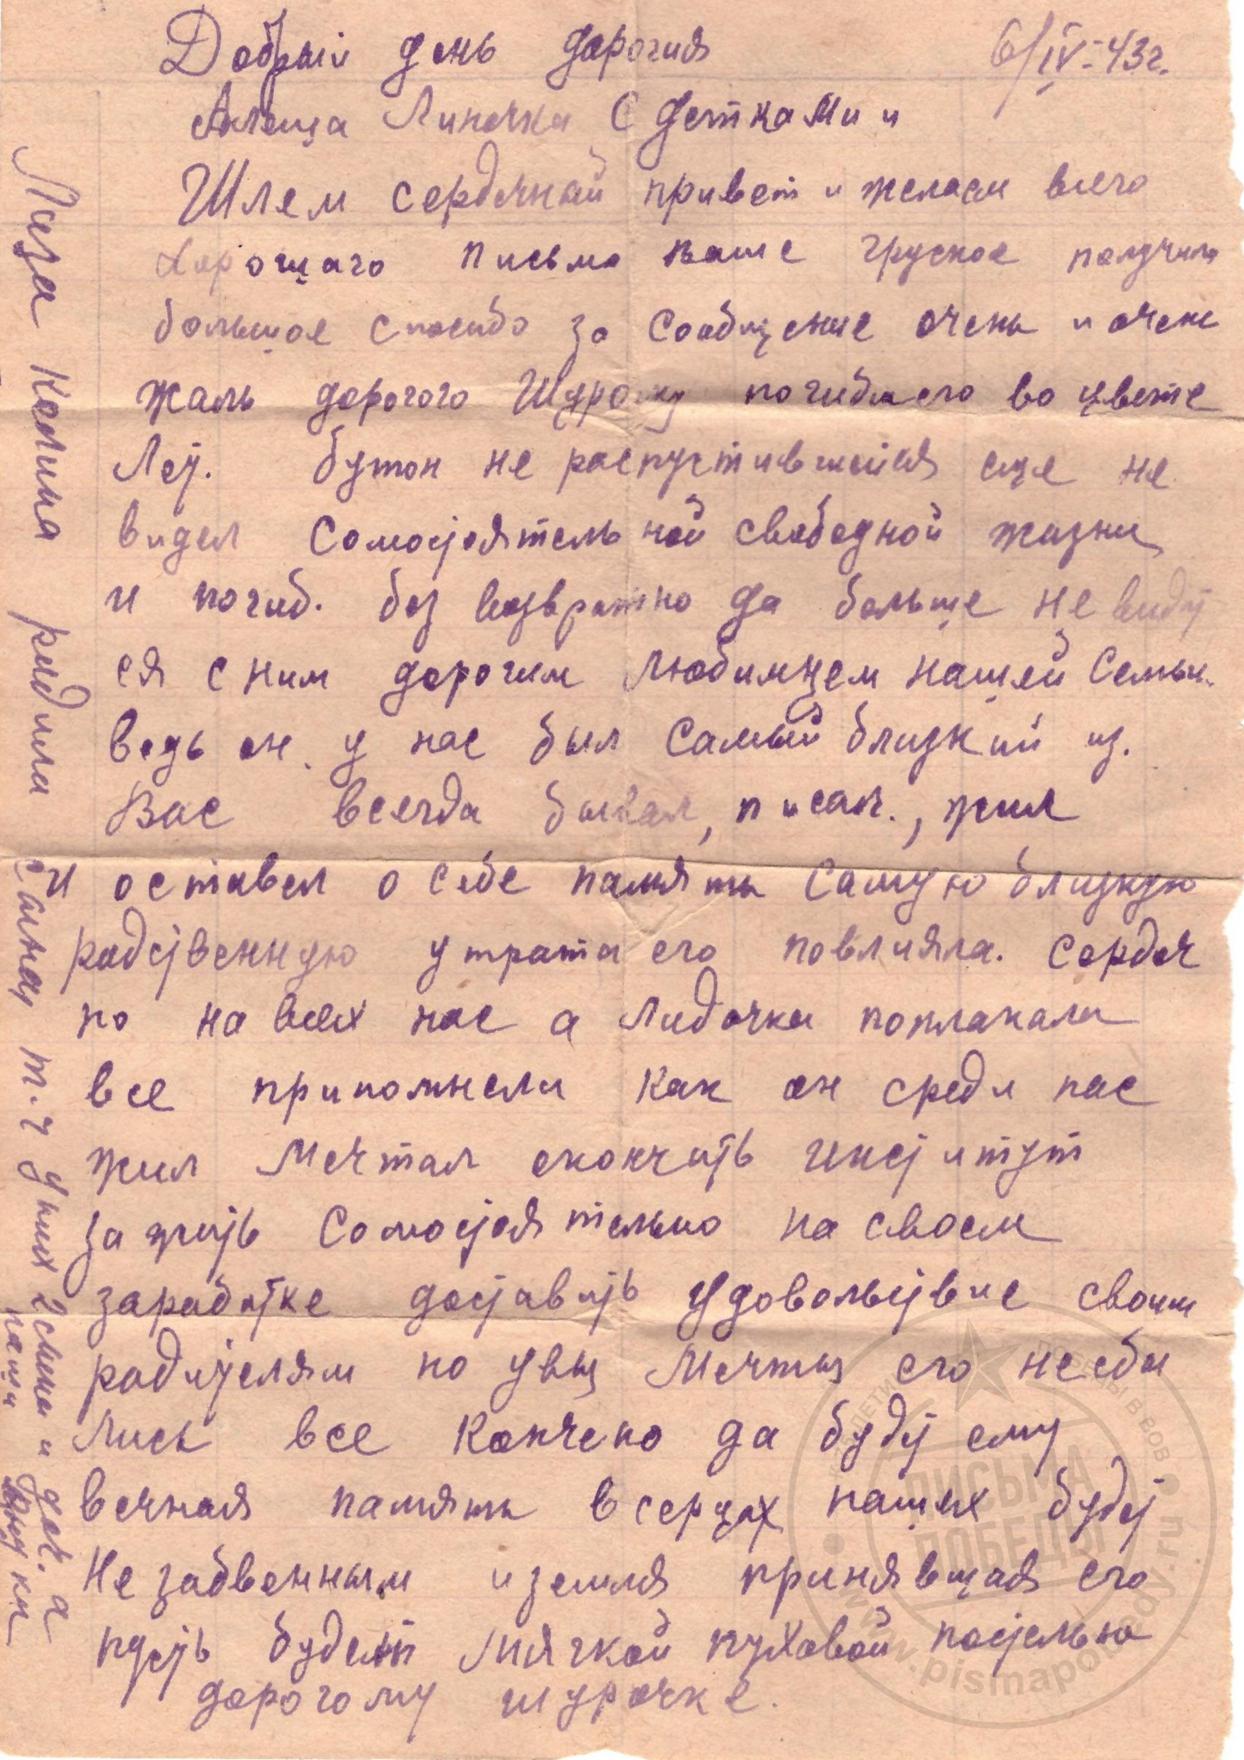 Добрый день дорогия 6/IV-43г.
Алеша Линочка с детками и
Шлем сердечный привет и желаем всего
хорошаго письмо ваше груское получили
большое спасибо за сообщение очень и очень
жаль дорогого Шурочку погибшего во цвете
лет. бутон не распустившейся еще не
видел самостоятельной свободной жизни
и погиб. без возвратно да больше не видит
ся с ним дорогим любимцем нашей семьи.
ведь он у нас был самый близкий из.
Вас всегда бывал, писал., жил
и оставел о себе память самую близкую
радственную утрата его повлияла. сердеч
но на всех нас а Лидочка поплакала
все припомнели как он среди нас
жил мечтал окончить институт
зажить самостоятельно на своем
заработке доставить удовольствие своим
радителям но увы мечты его не сбы
лись все кончено да будет ему
вечная память в серцах наших будет
незабвенным и земля принявшая его
пусть будет мягкой пуховой постелью
дорогому шурочке.
Лиза Калина радила сына, т.ч у них 2 сына и доч. а
наши внуки
ПИСЬМА
ПОБЕДЫ
www.pismapobedy.ru